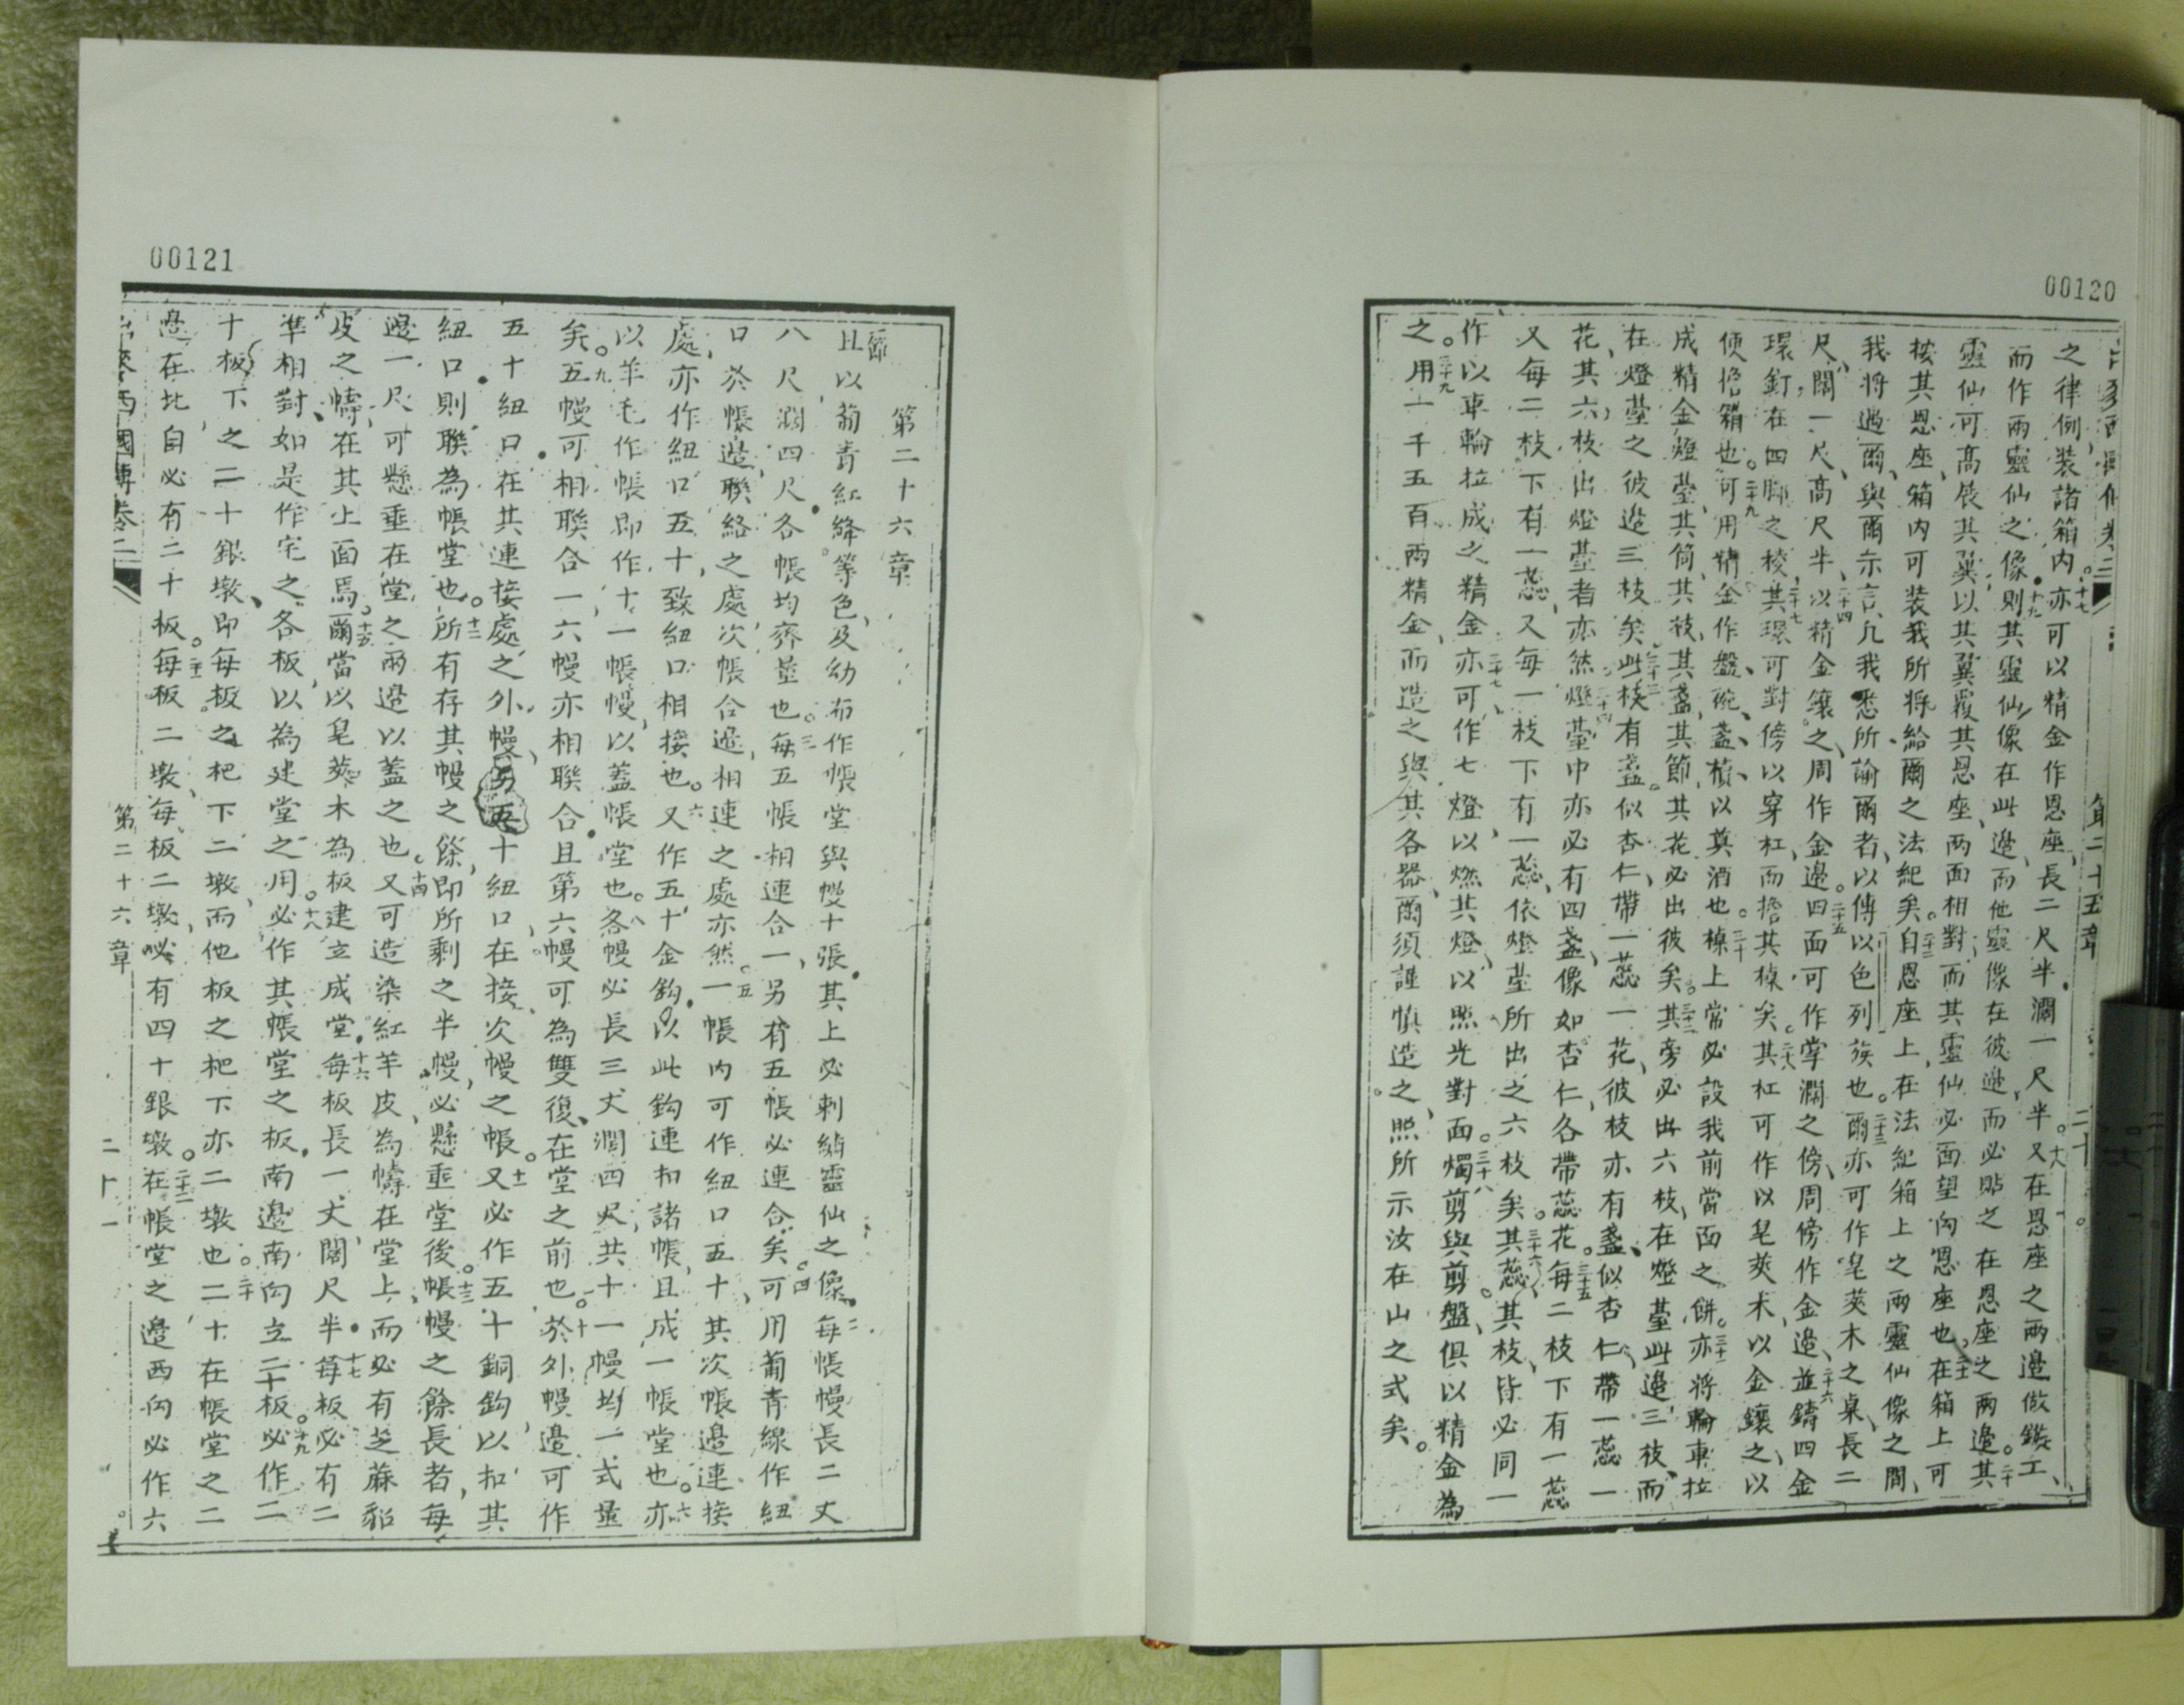 00120
第二十五章
二十
之律例裝諸箱內。十七亦可以精金作恩座長二尺半濶一尺半。十八又在恩座之兩邊做鑿工、
而作兩靈仙之像。十九則其靈仙像在此邊、而他靈像在彼邊、而必貼之在恩座之兩邊。二十其
靈仙可高展其翼以其翼覆其恩座、兩面相對而其靈仙必面望向恩座也。二十一在箱上可
按其恩座、箱內可裝我所將給爾之法紀矣。二十二自恩座上、在法紀箱上之兩靈仙像之間、
我將遇爾、與爾示言凡我悉所諭爾者、以傳以色列族也。二十三爾亦可作皂莢木之桌、長二
尺、闊一尺、高尺半、二十四以精金鑲之、周作金邊。二十五四面可作掌濶之傍、周傍作金邊、二十六並鑄四金
環、釘在四脚之棱、二十七其環可對傍以穿杠、而擔其棹矣。二十八其杠可作以皂莢木、以金鑲之、以
便擔箱也。二十九可用精金作盤、碗、盞、以奠酒也。三十棹上常必設我前當面之餅。三十一亦將輪車拉
成精金燈臺、其筒、其枝、其盞、其節、其花必出彼矣。三十二其旁必出六枝、在燈臺此邊三枝、而
在燈臺之彼邊三枝矣。三十三此枝有盞似杏仁、帶一蕊一花、彼枝亦有盞、似杏仁、帶一蕊一
花、其六枝出燈臺者亦然。三十四燈臺中亦必有四盞、像如杏仁、各帶蕊花。三十五每二枝下有一蕊
又每二枝下有一蕊、又每一枝下有一蕊、依燈臺所出之六枝矣。三十六其蕊、其枝、皆必同一
作以車輪拉成之精金、三十七亦可作七燈、以燃其燈、以照光對面。三十八燭剪與剪盤、俱以精金為
之。三十九用一千五百兩精金、而造之與其各器、爾須謹慎造之、照所示汝在山之式矣。
00121
第二十六章
節
且以葡青紅絳等色、及幼布作帳堂與幔十張、其上必刺綉靈仙之像。二每帳幔長二丈
八尺濶四尺、各帳均齊量也。三每五帳相連合一、另有五帳必連合矣。四可用葡青線作紐
口於帳邊、聯絡之處、次帳合邊、相連之處亦然。五一帳內可作紐口五十、其次帳邊連接
處、亦作紐口五十、致紐口相接也。六又作五十金鈎、以此鈎連扣諸帳、且成一帳堂也。亦
以羊毛作帳、即作十一帳幔、以蓋帳堂也。八各幔必長三丈濶四尺、共十一幔均一式量
矣。九五幔可相聯合一、六幔亦相聯合、且第六幔可為雙復、在堂之前也。十於外幔邊可作
五十紐口在其連接處之外幔、另五十紐口在接次幔之帳。十一又必作五十銅鈎、以扣其
紐口則聯為帳堂也。十二所有存其幔之餘、即所剩之半幔、必懸垂堂後。十三帳幔之餘長者、每
邊一尺可懸垂在堂之兩邊以蓋之也。十四又可造染紅羊皮為幬在堂上、而必有芝蔴貂
皮之幬、在其上面焉。十五爾當以皂莢木為板建立成堂。十六每板長一丈、闊尺半。十七每板必有二
準相對、如是作宅之各板、以為建堂之用。十八必作其帳堂之板、南邊南向立二十板。十九必作二
十板下之二十銀墩、即每板之杷下二墩、而他板之杷下亦二墩也。二十在帳堂之二
邊、在北自必有二十板。二十一每板二墩、每板二墩、必有四十銀墩。二十二在帳堂之邊西向必作六
第二十六章
二十一